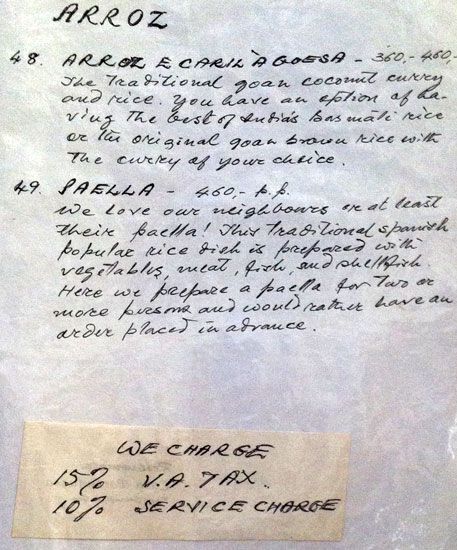 ARROZ
48. ARROZ E CARIL À GOESA - 360,- 460,-
The Traditional goan coconut curry
and rice. You have an option of ha-
ving The best of India's Basmati rice
or the original goan brown rice with
The curry of your choice.
49. PAELLA - 460,- p.p.
We love our neighbours or at least
their paella! This traditional spanish
popular rice dish is prepared with
vegetables, meat, fish, and shellfish
Here we prepare a paella for two or
more persons and would rather have an
order placed in advance.
WE CHARGE
15% V.A. TAX.
10% SERVICE CHARGE